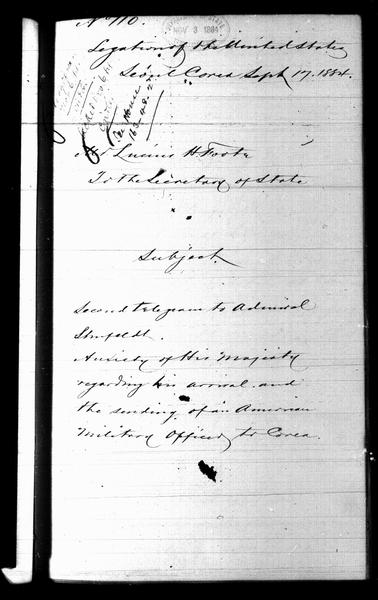 No 110.
NOV 3 1884
Legation of the United States
Seoul Corea Sept 17. 1884.
Mr Lucius H. Foote
To the Secretary of State
Subject.
Second telegram to Admiral
Shufeldt.
Anxiety of His Majesty
regarding his arrival and
the sending of an American
Military Officer to Corea.